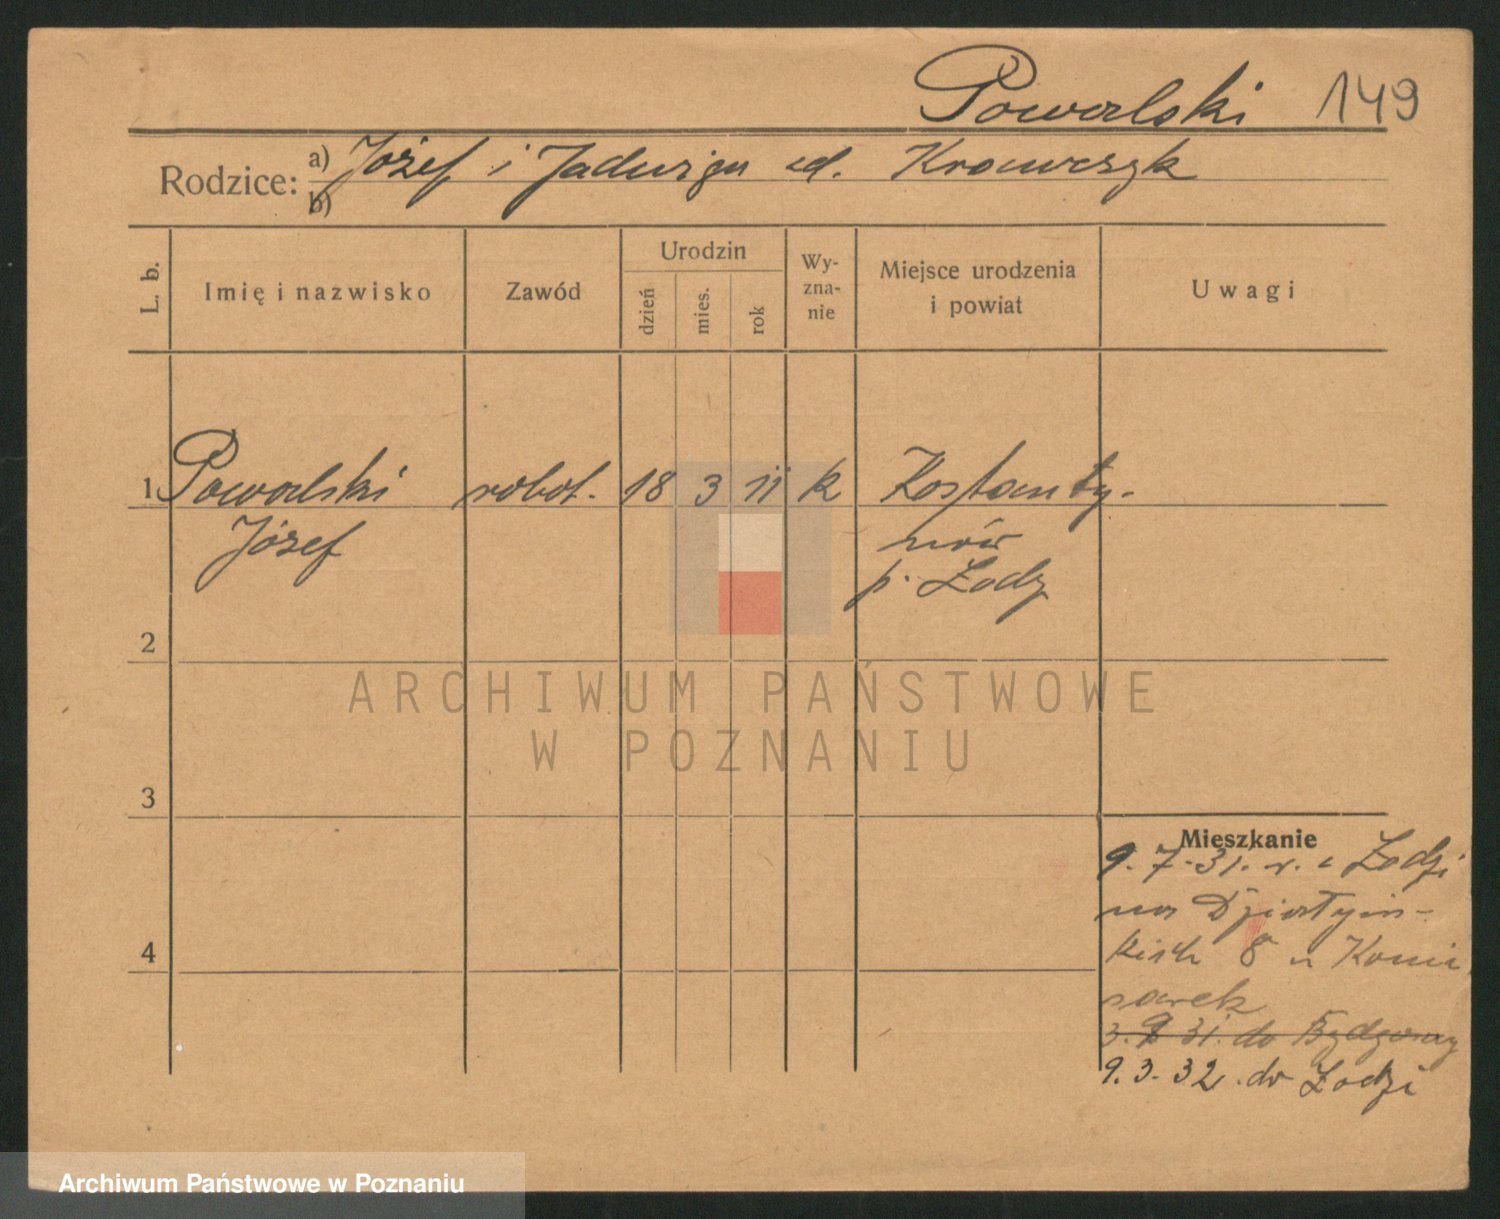 Powalski 149
Rodzice: a) Józef i Jadwiga zd. Krawczyk
b)
L. b.
Imię i nazwisko
Zawód
Urodzin
dzień
mies.
rok
Wy-
zna-
nie
Miejsce urodzenia
i powiat
Uwagi
1 Powalski robot. 18 3 11 k Kostanty-
Józef nów
p. Łódź
2
3
4
Mieszkanie
9.7.31. r. z Łodzi
na Działyń-
skich 8 u
3. 9 31. do Bydgoszczy
9.3.32. do Łodzi
ARCHIWUM PAŃSTWOWE
W POZNANIU
Archiwum Państwowe w Poznaniu